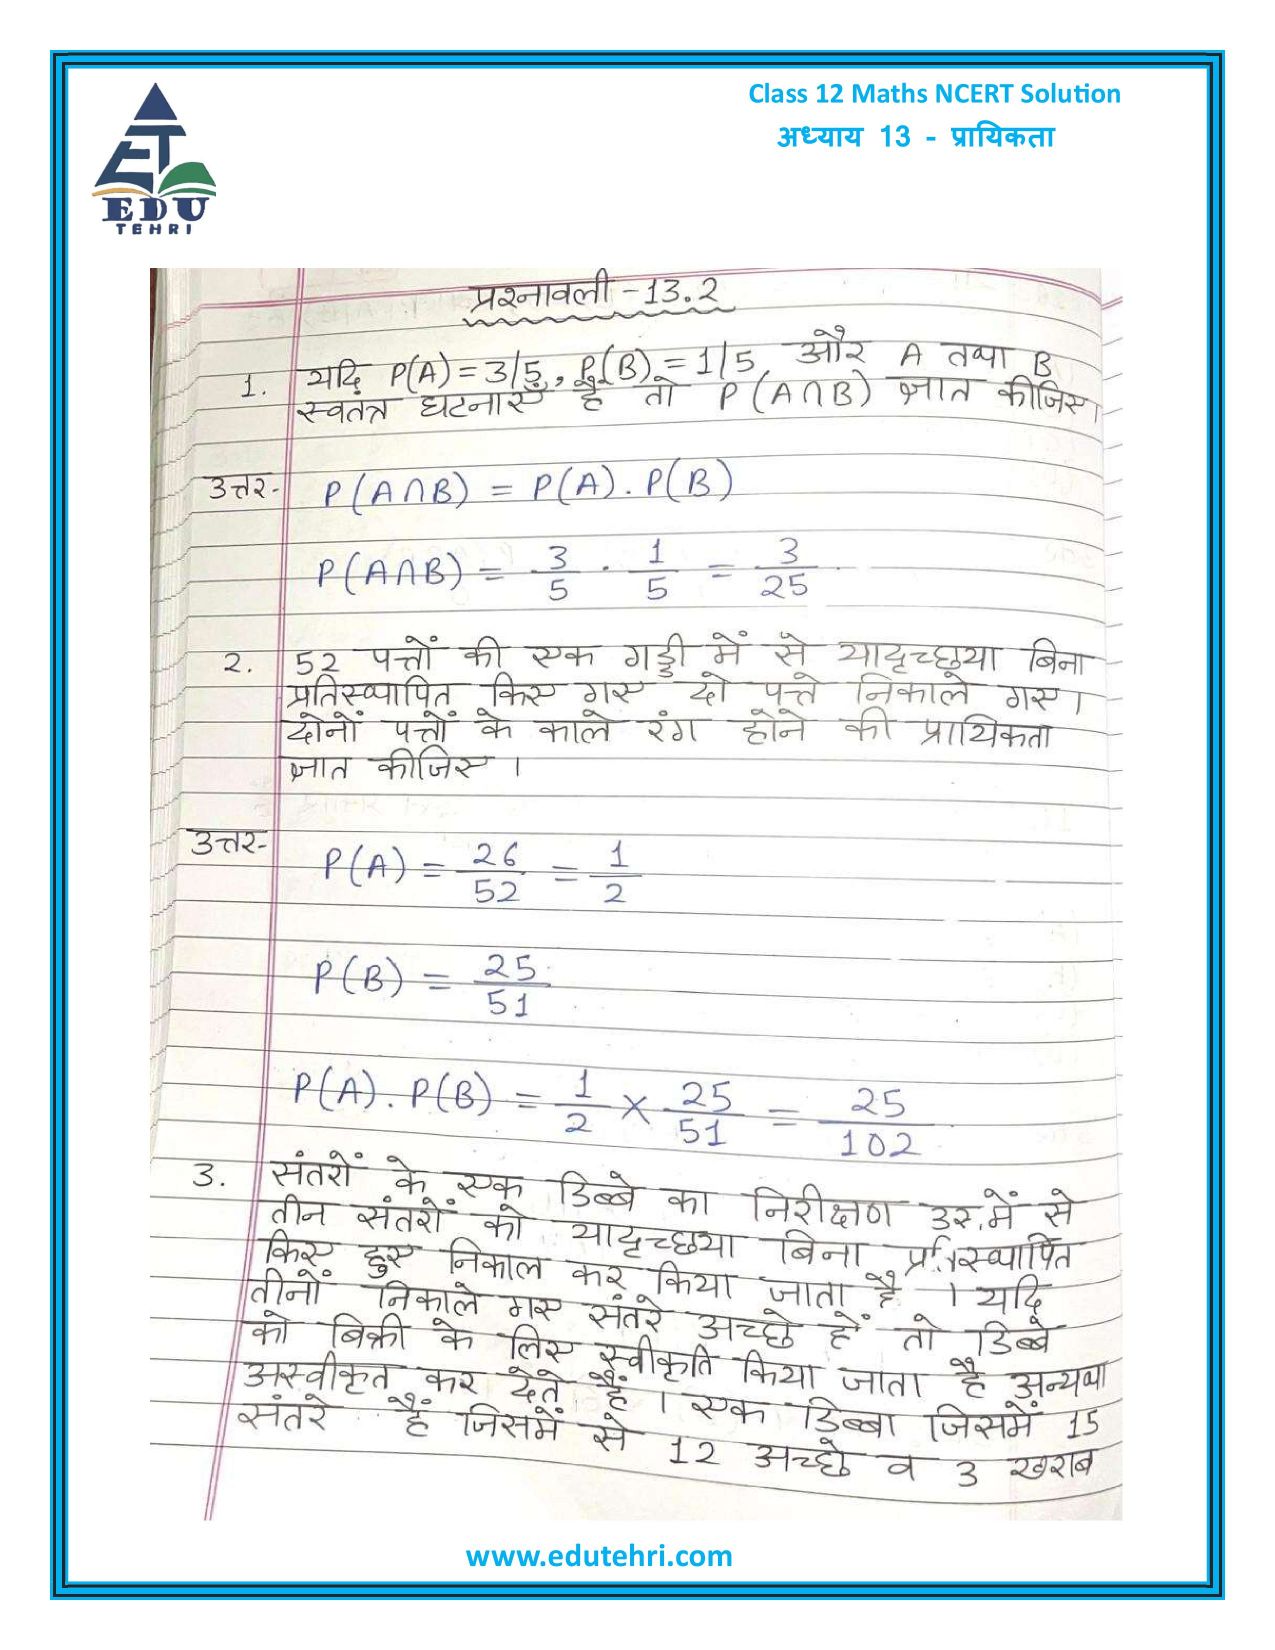 Class 12 Maths NCERT Solution
अध्याय 13 - प्रायिकता
EDU
TEHRI
प्रश्नावली - 13.2
1. यदि P(A) = 3/5, P(B) = 1/5 और A तथा B
स्वतंत्र घटनाएँ हैं तो P(A∩B) ज्ञात कीजिए।
उत्तर- P(A∩B) = P(A). P(B)
P(A∩B) = 3/5 . 1/5 = 3/25
2. 52 पत्तों की एक गड्डी में से यादृच्छया बिना
प्रतिस्थापित किए गए दो पत्ते निकाले गए।
दोनों पत्तों के काले रंग होने की प्रायिकता
ज्ञात कीजिए।
उत्तर- P(A) = 26/52 = 1/2
P(B) = 25/51
P(A). P(B) = 1/2 × 25/51 = 25/102
3. संतरों के एक डिब्बे का निरीक्षण उसमें से
तीन संतरों को यादृच्छया बिना प्रतिस्थापित
किए हुए निकाल कर किया जाता है। यदि
तीनों निकाले गए संतरे अच्छे हों तो डिब्बे
को बिक्री के लिए स्वीकृति किया जाता है अन्यथा
अस्वीकृत कर देते हैं। एक डिब्बा जिसमें 15
संतरे हैं जिसमें से 12 अच्छे व 3 खराब
www.edutehri.com